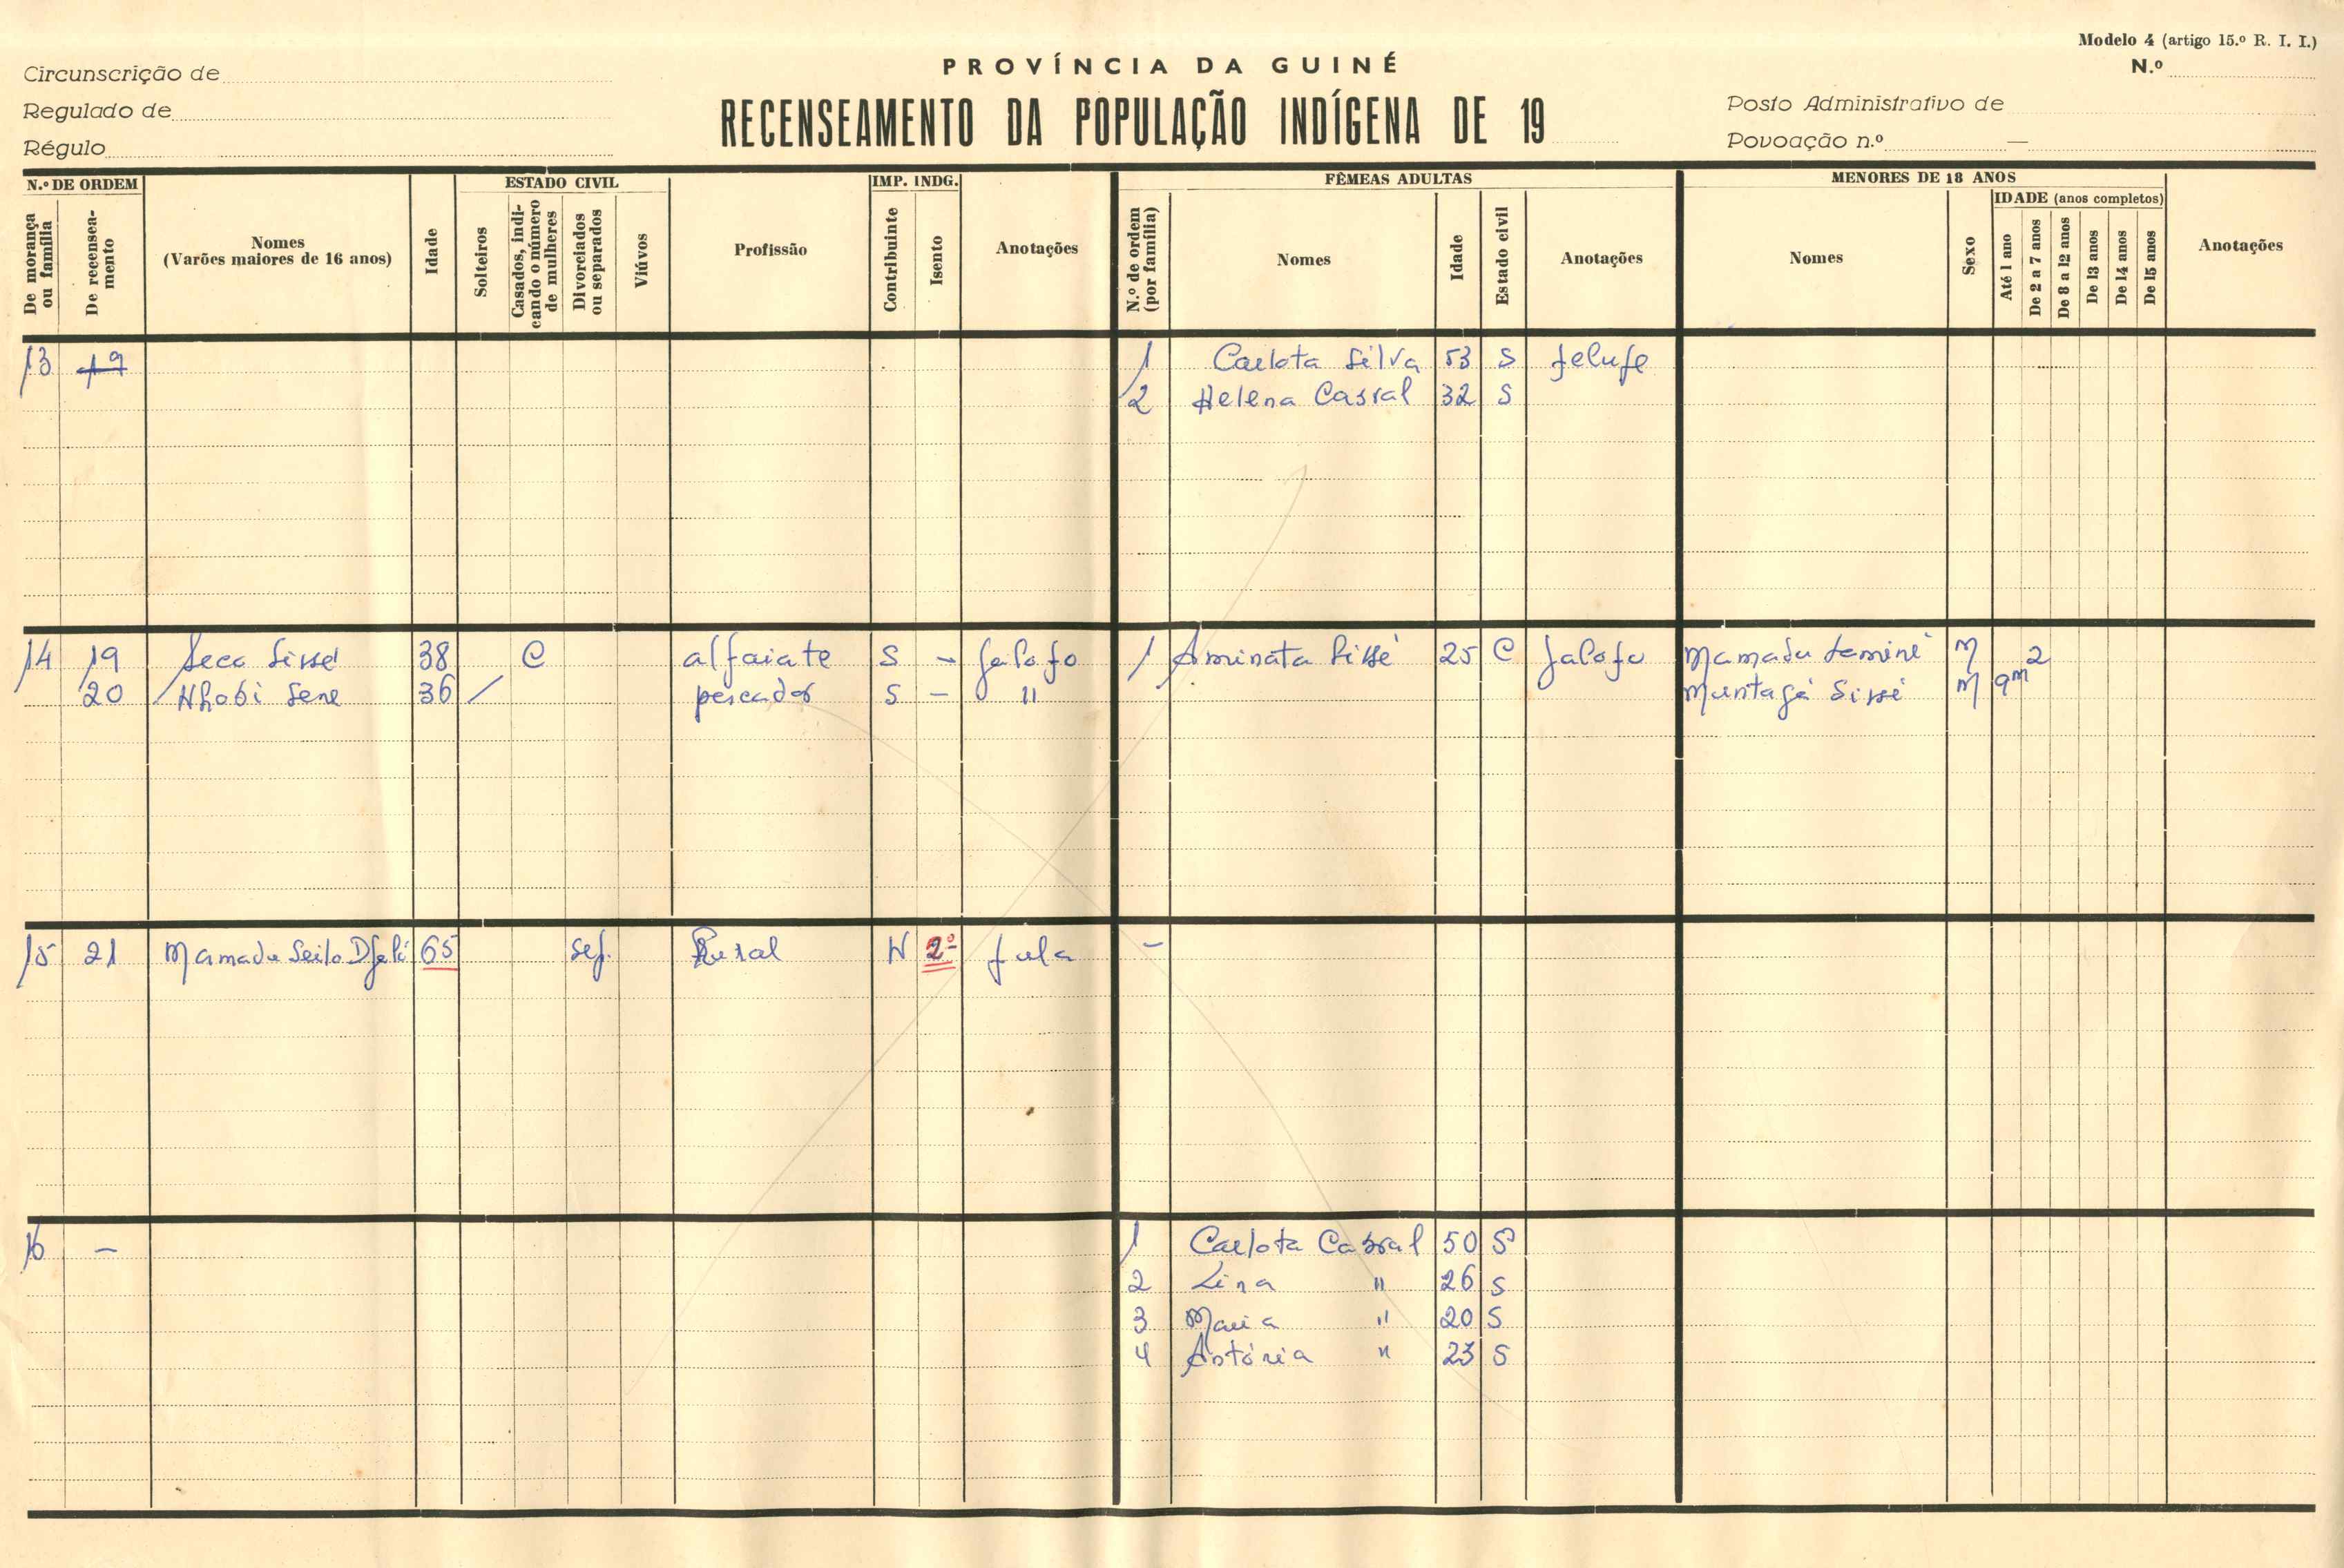 Modelo 4 (artigo 15.º R. I. I.)
PROVÍNCIA DA GUINÉ
N.º
Circunscrição de
Regulado de
Régulo
RECENSEAMENTO DA POPULAÇÃO INDÍGENA DE 19
Posto Administrativo de
Povoação n.º —
N.º DE ORDEM
De morança ou família
De recenseamento
Nomes
(Varões maiores de 16 anos)
Idade
ESTADO CIVIL
Solteiros
Casados, indicando o número de mulheres
Divorciados ou separados
Viúvos
Profissão
IMP. INDG.
Contribuinte
Isento
Anotações
FÊMEAS ADULTAS
N.º de ordem (por família)
Nomes
Idade
Estado civil
Anotações
MENORES DE 18 ANOS
Nomes
Sexo
IDADE (anos completos)
Até 1 ano
De 2 a 7 anos
De 8 a 12 anos
De 13 anos
De 14 anos
De 15 anos
Anotações
13 19 1 Carlota Silva 53 S felufe
2 Helena Casral 32 S
14 19 Seco Sissé 38 C alfaiate S - Jalofo 1 Aminata Sissé 25 C Jalofo Mamadu Lamine M 2
20 Nhobi Sene 36 / pescador S - " Muntagá Sissé M 9m
15 21 Mamadu Seilo Djali 65 sep. Rural N 2º fula -
16 - 1 Carlota Cabral 50 S
2 Lina " 26 S
3 Maria " 20 S
4 Antónia " 23 S